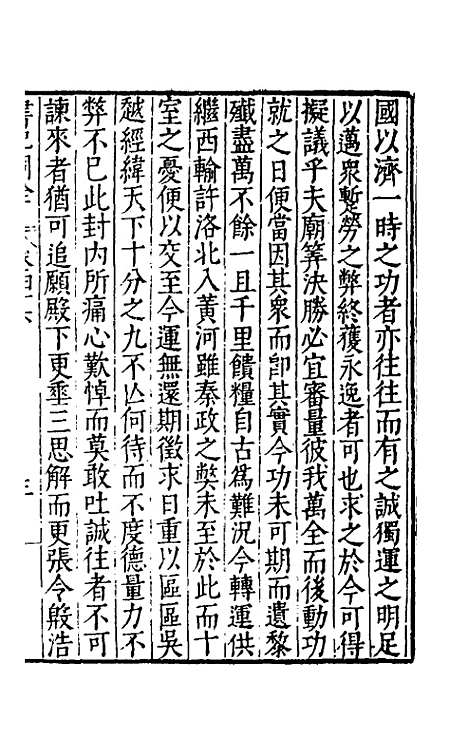 國以濟一時之功者亦往往而有之誠獨運之明足
以邁衆蹔勞之弊終獲永逸者可也求之於今可得
擬議乎夫廟筭決勝必宜審量彼我萬全而後動功
就之日便當因其衆而卽其實今功未可期而遺黎
殲盡萬不餘一且千里饋糧自古爲難況今轉運供
繼西輸許洛北入黃河雖秦政之獘未至於此而十
室之憂便以交至今運無還期徵求日重以區區吳
越經緯天下十分之九不亾何待而不度德量力不
弊不已此封内所痛心歎悼而莫敢吐誠往者不可
諫來者猶可追願殿下更埀三思解而更張令殷浩